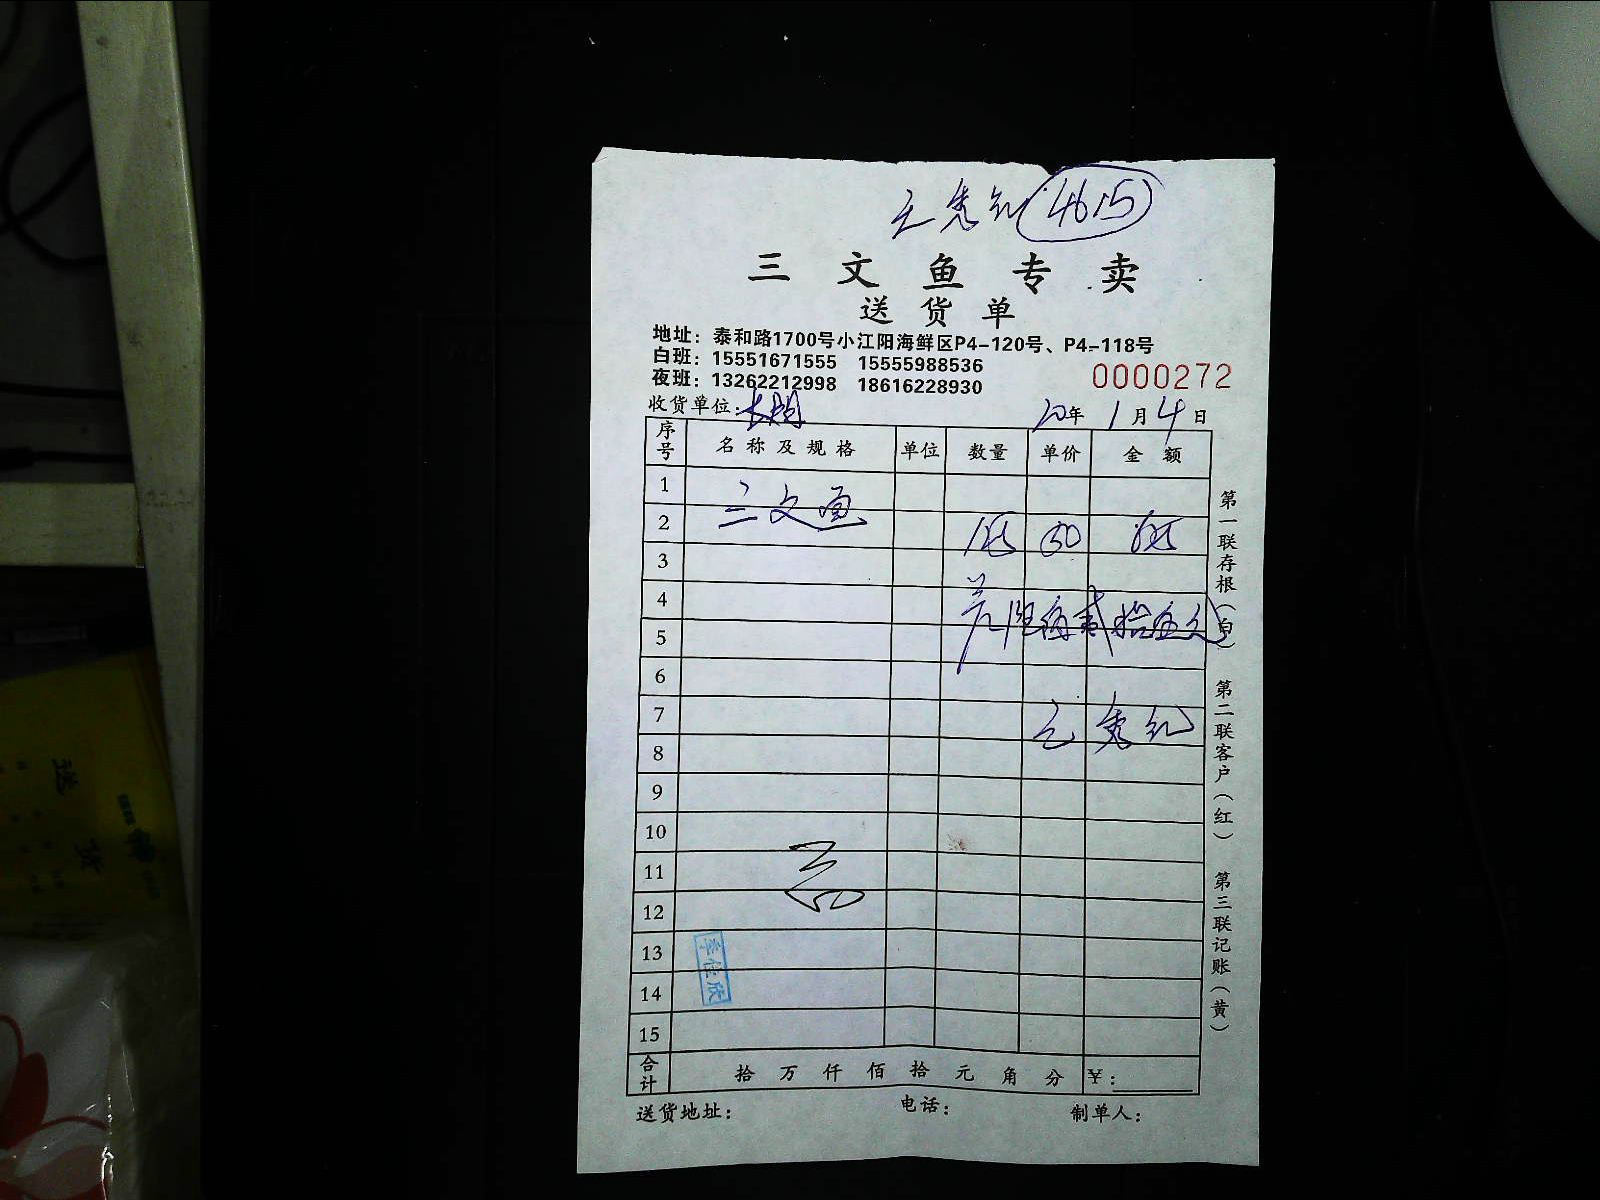 4615
三文鱼专卖
送货单
地址：泰和路1700号小江阳海鲜区P4-120号、P4-118号
白班：15551671555 15555988536
夜班：13262212998 18616228930
0000272
收货单位：
20年1月4日
序号 名称及规格 单位 数量 单价 金额
1
三文鱼
2
50
3
4
5
拾伍元
6
7
8
9
10
11
12
13
14
15
合计 拾 万 仟 佰 拾 元 角 分 ¥：
送货地址： 电话： 制单人：
第一联存根（白） 第二联客户（红） 第三联记账（黄）